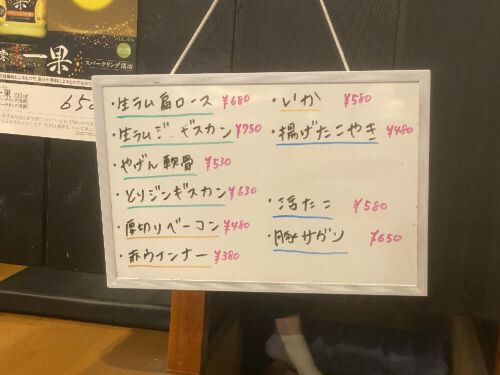 一果
スパークリング清酒
・生ラム肩ロース ¥680
・生ラムジ ギスカン ¥750
・やげん軟骨 ¥530
・とりジンギスカン ¥630
・厚切りベーコン ¥480
・赤ウインナー ¥380
・いか ¥580
・揚げたこやき ¥480
・活たこ ¥580
・豚サガリ ¥650